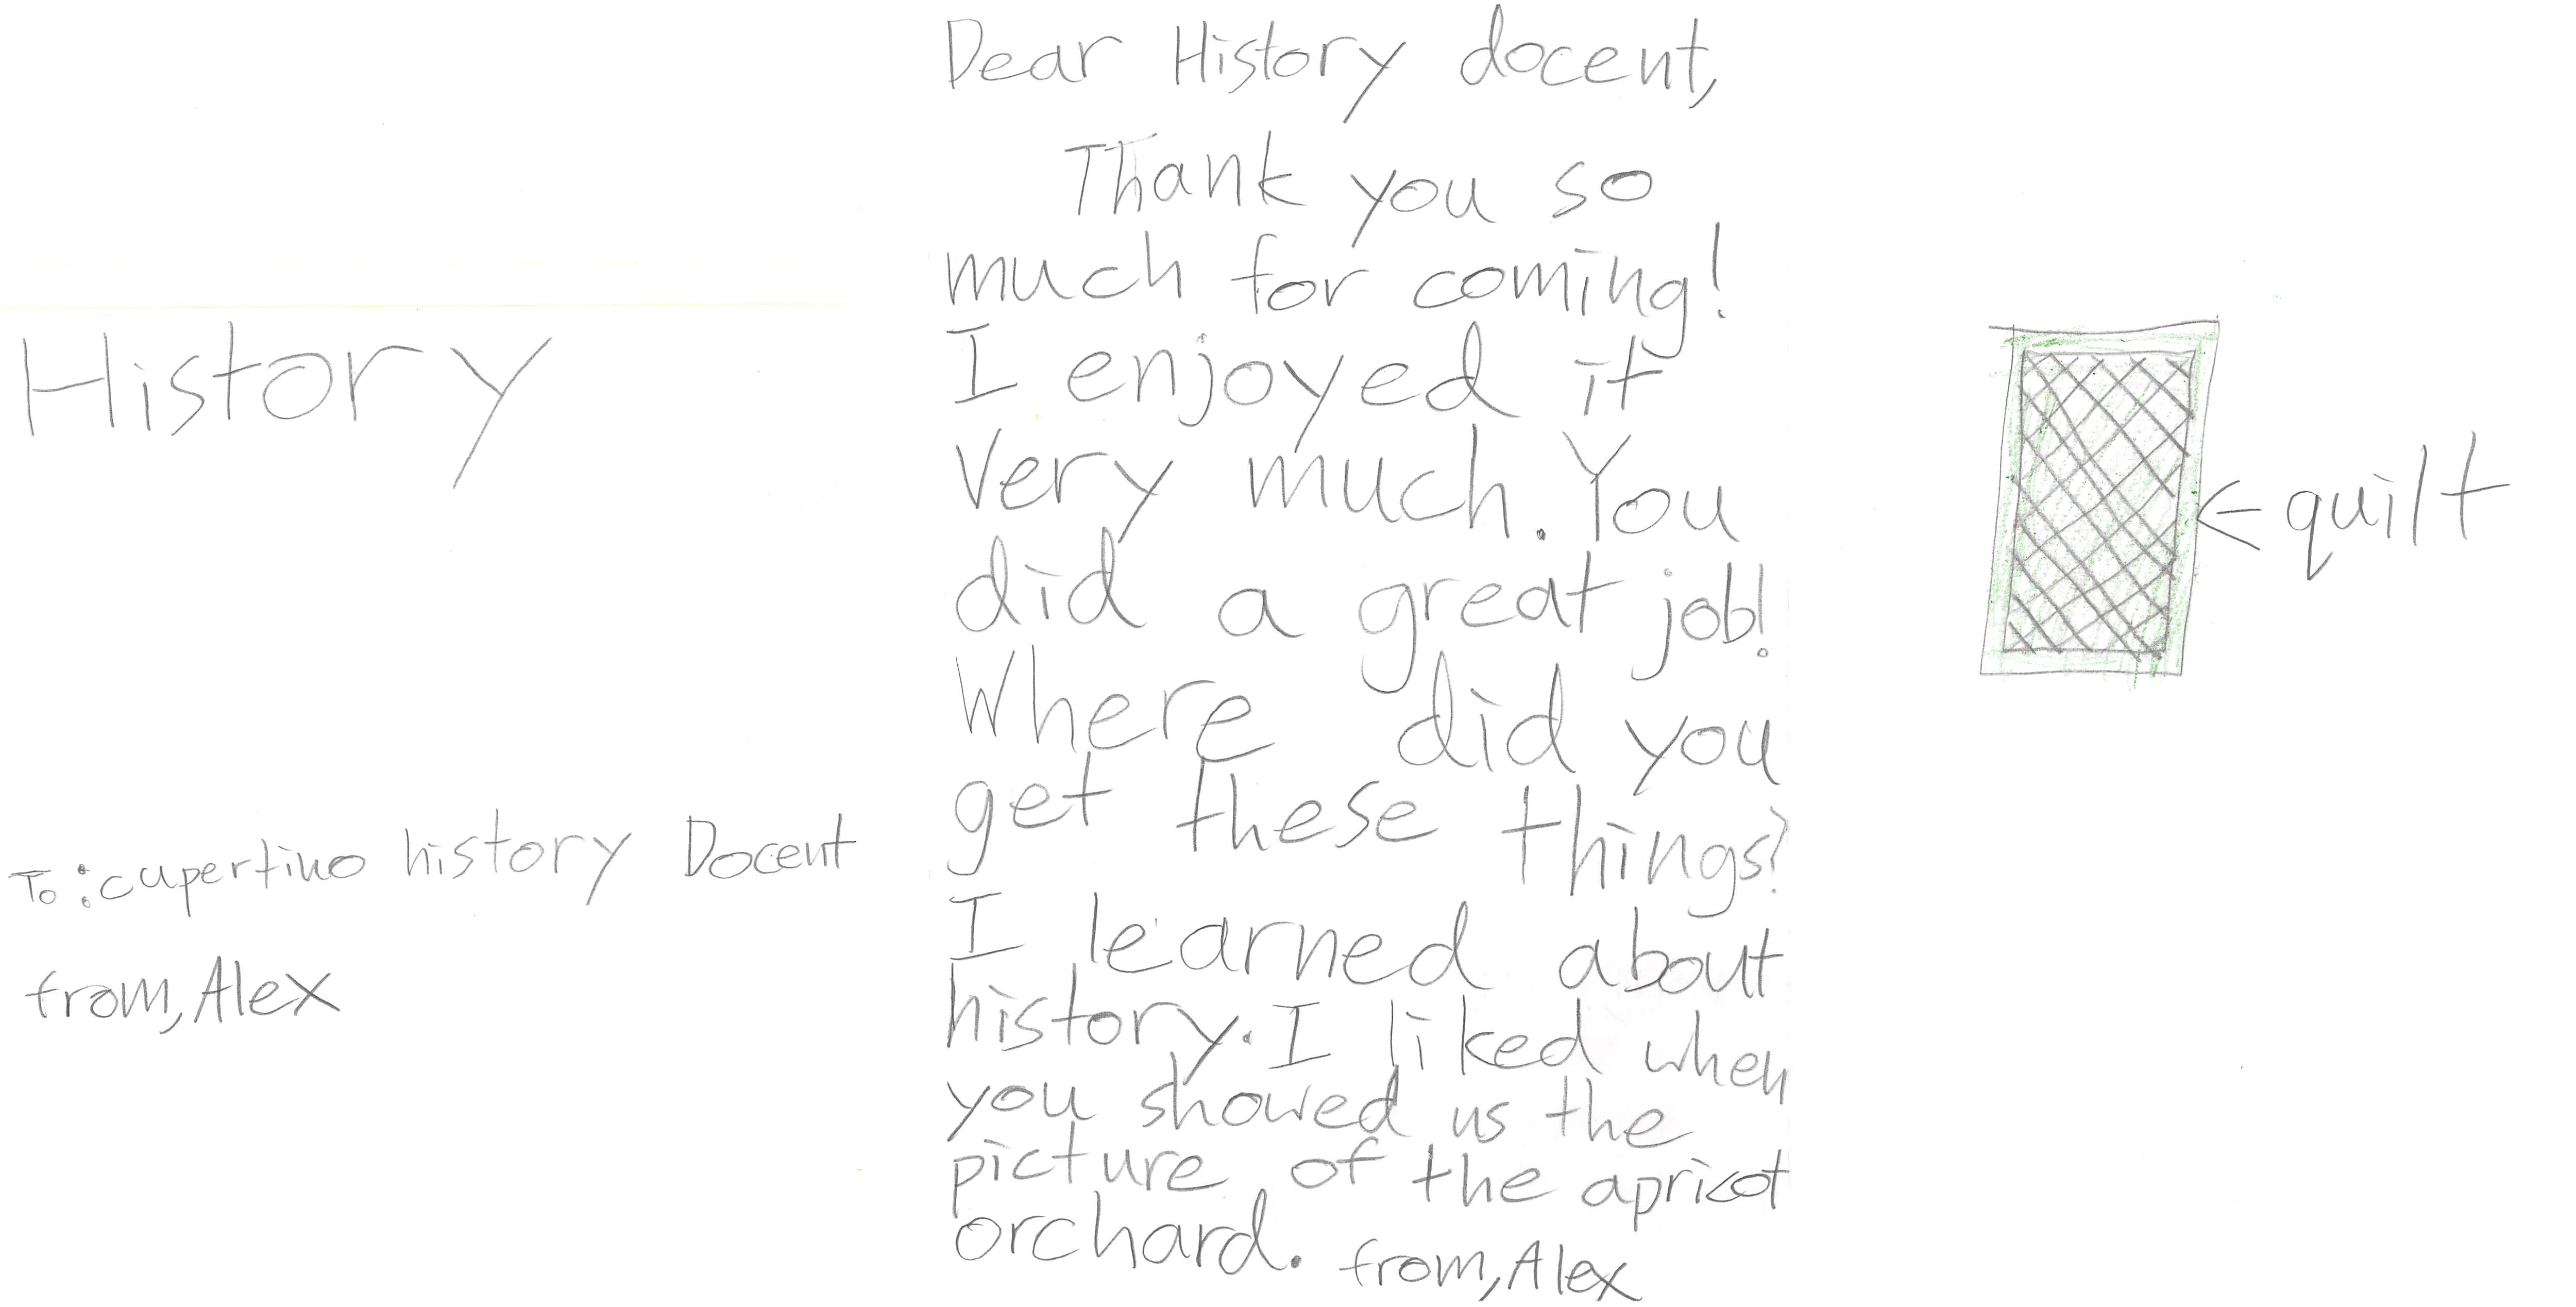 History
To: cupertino history Docent
from, Alex
Dear History docent,
Thank you so
much for coming!
I enjoyed it
Very much. You
did a great job!
Where did you
get these things?
I learned about
history. I liked when
you showed us the
picture of the apricot
orchard. from, Alex
← quilt